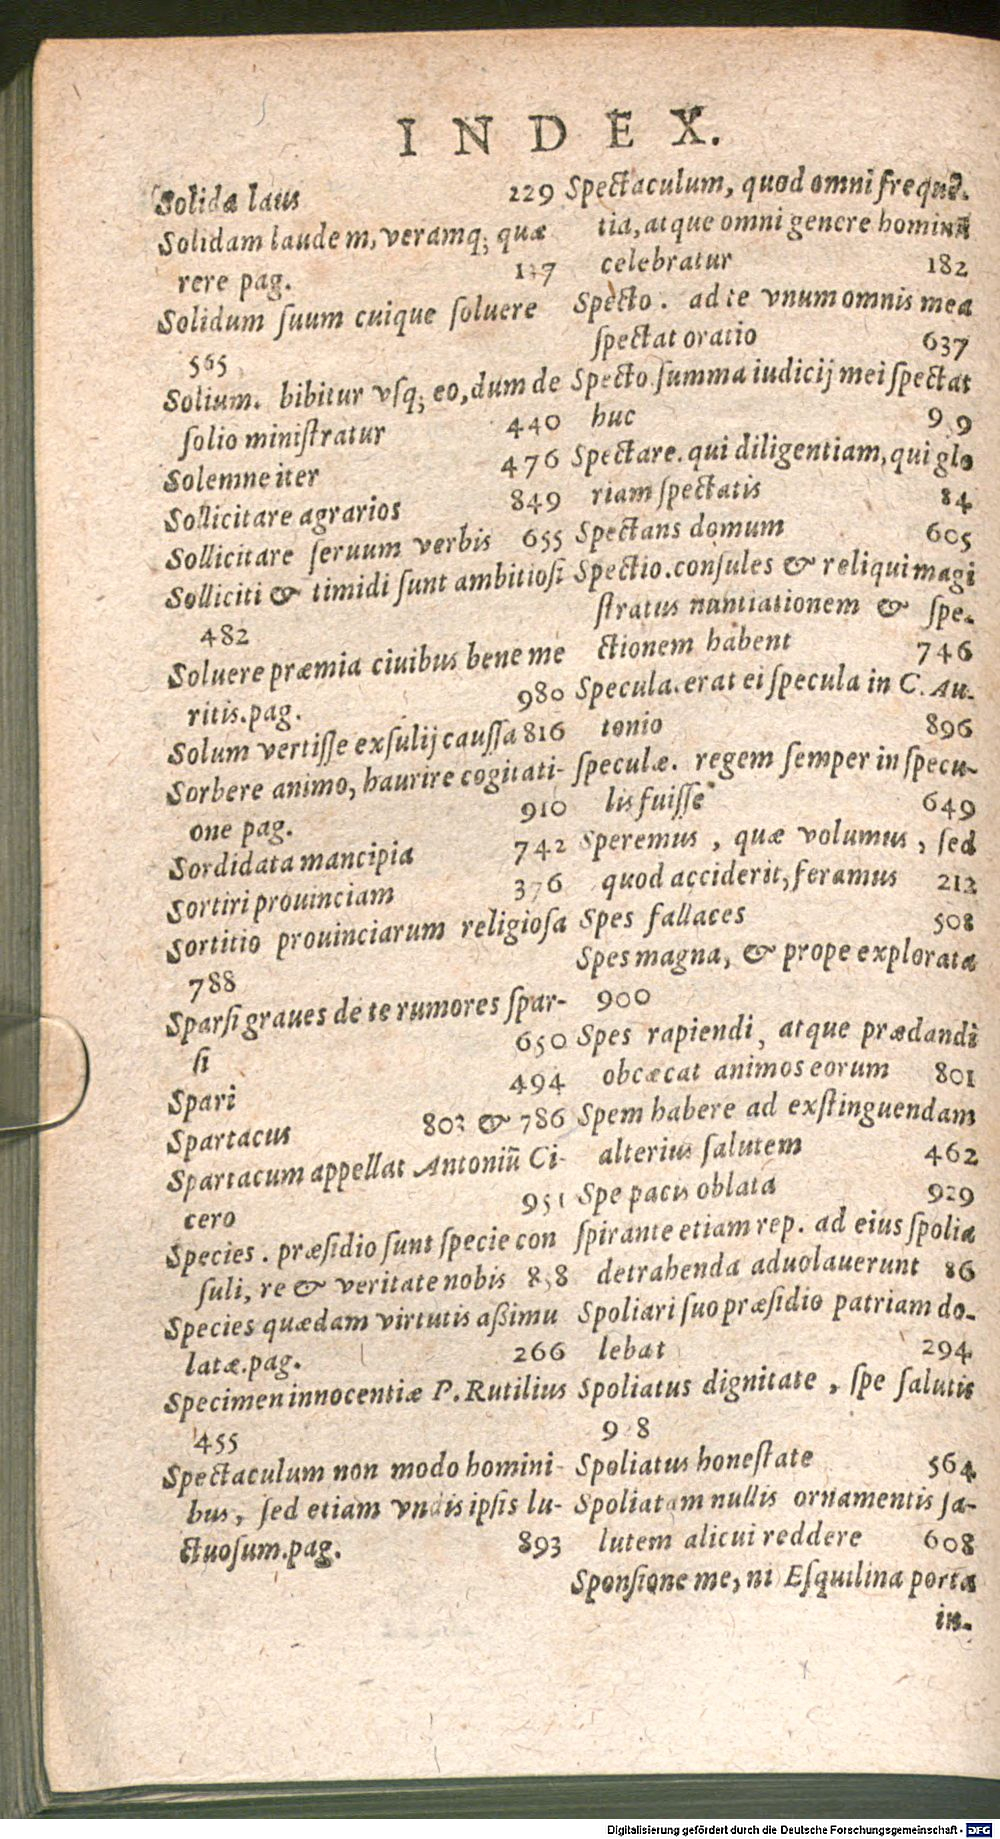 INDEX.
Solida laus 229
Solidam laudem, veramq; quæ
rere pag. 137
Solidum ſuum cuique ſoluere
565
Solium. bibitur vſq; eo, dum de
ſolio miniſtratur 440
Solemne iter 476
Sollicitare agrarios 849
Sollicitare ſeruum verbis 655
Solliciti & timidi ſunt ambitioſi
482
Soluere præmia ciuibus bene me
ritis. pag. 980
Solum vertiſſe exſulij cauſſa 816
Sorbere animo, haurire cogitati-
one pag. 910
Sordidata mancipia 742
Sortiri prouinciam 376
Sortitio prouinciarum religioſa
788
Sparſi graues de te rumores ſpar-
ſi 650
Spari 494
Spartacus 803 & 786
Spartacum appellat Antoniũ Ci-
cero 951
Species. præſidio ſunt ſpecie con
ſuli, re & veritate nobis 8 8
Species quædam virtutis aßimu
latæ. pag. 266
Specimen innocentiæ P. Rutilius
455
Spectaculum non modo homini-
bus, ſed etiam vndis ipſis lu-
ctuoſum. pag. 893
Spectaculum, quod omni frequẽ-
tia, atque omni genere hominũ
celebratur 182
Specto. ad te vnum omnis mea
ſpectat oratio 637
Specto ſumma iudicij mei ſpectat
huc 9 9
Spectare. qui diligentiam, qui glo
riam ſpectatis 84
Spectans domum 605
Spectio. conſules & reliqui magi
ſtratus nuntiationem & ſpe-
ctionem habent 746
Specula. erat ei ſpecula in C. An-
tonio 896
ſpeculæ. regem ſemper in ſpecu-
lis fuiſſe 649
Speremus, quæ volumus, ſed
quod acciderit, feramus 212
Spes fallaces 508
Spes magna, & prope explorata
900
Spes rapiendi, atque prædandi
obcæcat animos eorum 801
Spem habere ad exſtinguendam
alterius ſalutem 462
Spe pacis oblata 929
ſpirante etiam rep. ad eius ſpolia
detrahenda aduolauerunt 86
Spoliari ſuo præſidio patriam do-
lebat 294
Spoliatus dignitate, ſpe ſalutis
9 8
Spoliatus honeſtate 564
Spoliatam nullis ornamentis ſa-
lutem alicui reddere 608
Sponſione me, ni Eſquilina porta
in-
Digitalisierung gefördert durch die Deutsche Forschungsgemeinschaft - DFG